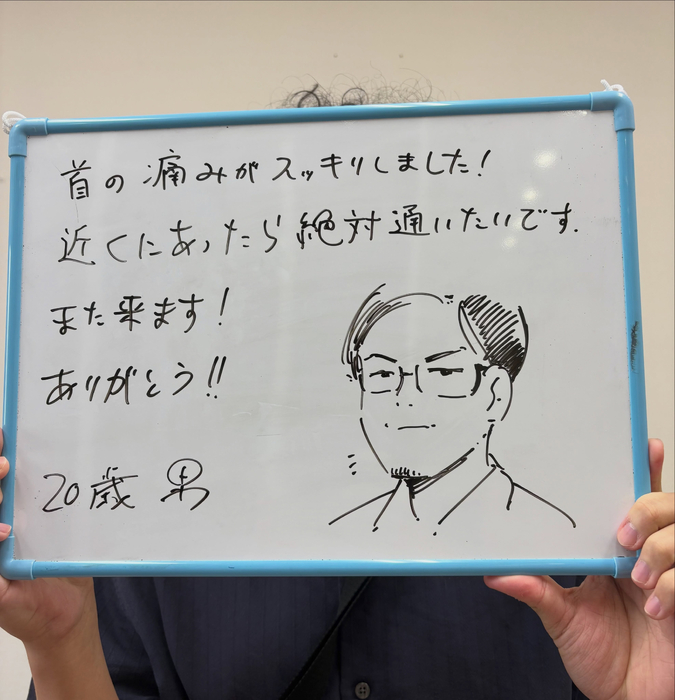 首の痛みがスッキリしました!
近くにあったら絶対通いたいです.
また来ます!
ありがとう!!
20歳 男